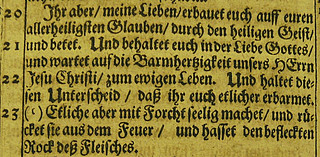 20 Ihr aber/ meine Lieben/ erbauet euch auff euren
allerheiligsten Glauben/ durch den heiligen Geist/
21 und betet. Und behaltet euch in der Liebe Gottes/
und wartet auf die Barmhertzigkeit unsers HErrn
22 Jesu Christi/ zum ewigen Leben. Und haltet die-
sen Unterscheid/ daß ihr euch etlicher erbarmet.
23 (c) Etliche aber mit Forcht seelig machet/ und rü-
cket sie aus dem Feuer/ und hasset den befleckten
Rock deß Fleisches.